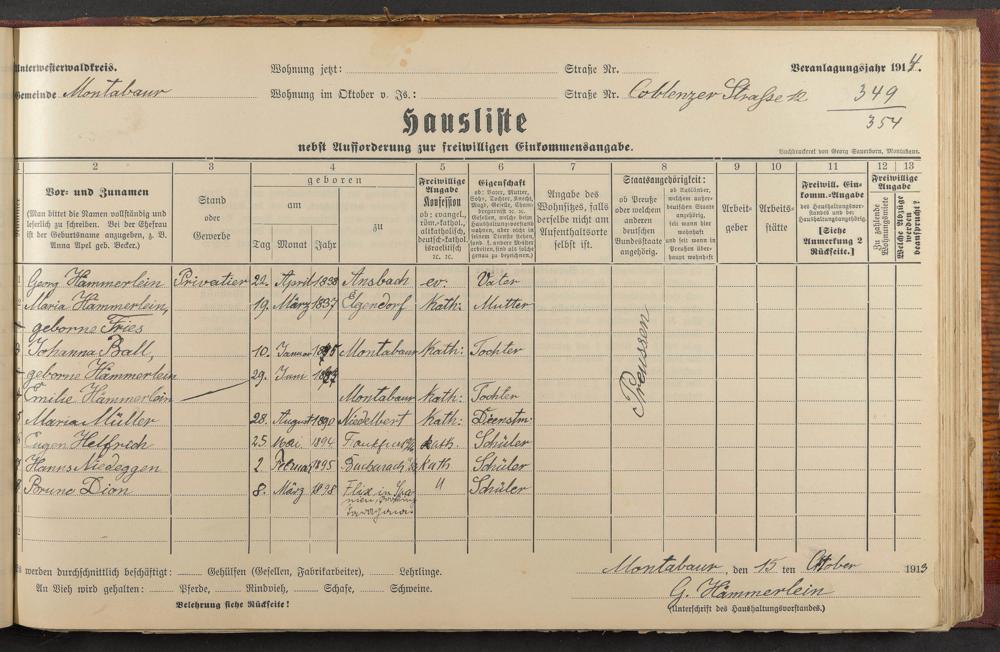 Unterwesterwaldkreis. Wohnung jetzt: Straße Nr. Veranlagungsjahr 1914.
Gemeinde Montabaur Wohnung im Oktober v. Js.: Straße Nr. Coblenzer Strasse 12 349
354
Hausliste
nebst Aufforderung zur freiwilligen Einkommensangabe.
Buchdruckerei von Georg Sauerborn, Montabaur.
1 2 3 4 5 6 7 8 9 10 11 12 13
Vor- und Zunamen
(Man bittet die Namen vollständig und leserlich zu schreiben. Bei der Ehefrau ist der Geburtsname anzugeben, z. B. Anna Apel geb. Becker.)
Stand oder Gewerbe
geboren
am
Tag Monat Jahr
zu
Freiwillige Angabe
Konfession
ob: evangel., röm.-kathol., altkatholisch, deutsch-kathol. israelitisch ec. ec.
Eigenschaft
Angabe des Wohnsitzes, falls derselbe nicht am Aufenthaltsorte selbst ist.
Staatsangehörigkeit:
ob Preuße oder welchem anderen deutschen Bundesstaate angehörig.
ob Ausländer, welchem außerdeutschen Staate angehörig, seit wann hier wohnhaft und seit wann in Preußen überhaupt wohnhaft
Arbeitgeber
Arbeitsstätte
Freiwill. Einkomm.-Angabe
des Haushaltungsvorstandes und der Haushaltungsangehörig.
[Siehe Anmerkung 2 Rückseite.]
Freiwillige Angabe
Zu zahlende Wohnungsmiete
Welche Abzüge werden beansprucht?
1 Georg Hämmerlein Privatier 22. April 1838 Ansbach ev. Vater
2 Maria Hämmerlein, 19. März 1837 Elgendorf Kath: Mutter
geborne Fries
3 Johanna Ball, 10. Januar Montabaur Kath: Tochter
geborne Hämmerlein 29. Juni
4 Emilie Hämmerlein Montabaur Kath: Tochter
5 Maria Müller 28. August 1890 Niedelbert Kath: Dienstm:
6 Eugen Helfrich 25 Mai 1894 Kath. Schüler
7 Hanns Niedeggen 2. Februar 1895 Bacharach Kath Schüler
8 Bruno Dion 8. März 1898 Flix in Spanien, " Schüler
Preussen
Es werden durchschnittlich beschäftigt: Gehülfen (Gesellen, Fabrikarbeiter), Lehrlinge.
An Vieh wird gehalten: Pferde, Rindvieh, Schafe, Schweine.
Belehrung siehe Rückseite!
Montabaur, den 15 ten Oktober 1913
G. Hämmerlein
(Unterschrift des Haushaltungsvorstandes.)